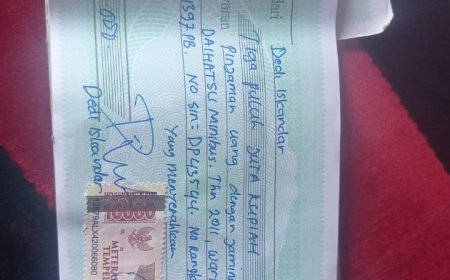 Dari
Dedi Iskandar
Tiga puluh JUTA RUPIAH
Pinjaman uang dengan jamin
DAIHATSU Minibus. Thn 2011, war
1397PB. No sin = DP43544. No Rangk
Yang menyerahkan
Dedi Iskandar
METERAI
TEMPEL